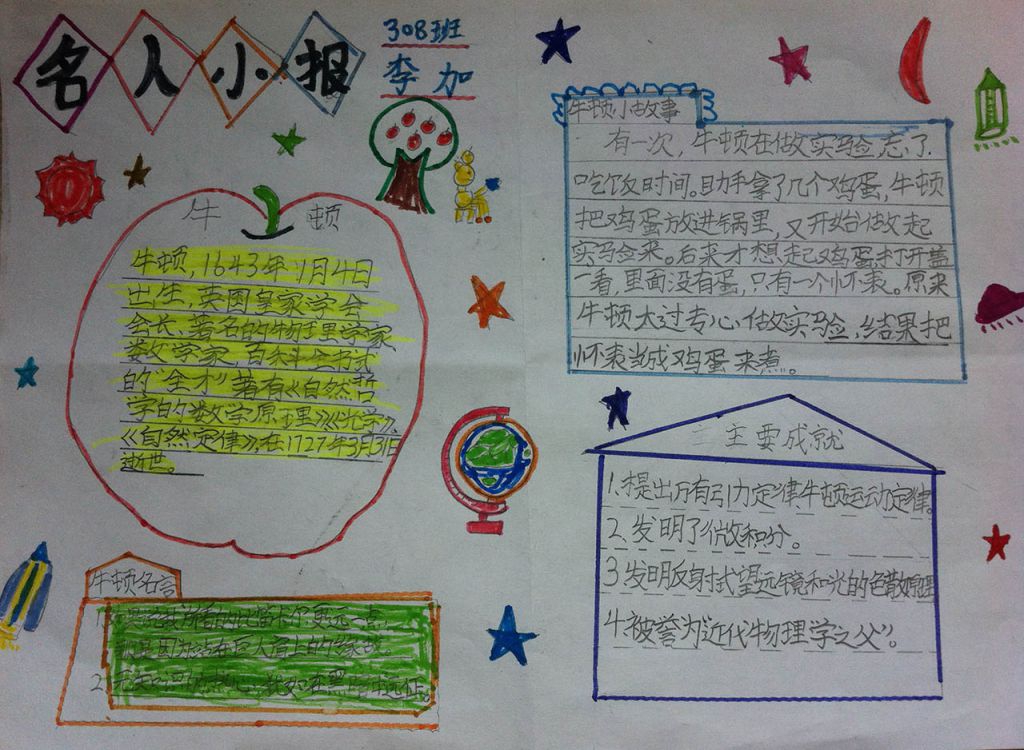 名人小报
308班
李加
牛顿
牛顿,1643年1月4日
出生,英国皇家学会
会长,著名的物理学家,
数学家,百科全书式
的“全才”著有《自然哲
学的数学原理》《光学》、
《自然定律》,在1727年3月31日
逝世。
牛顿名言
1.
就是因为站在巨人肩上的缘故。
2.
牛顿小故事
有一次,牛顿在做实验,忘了
吃饭时间。助手拿了几个鸡蛋,牛顿
把鸡蛋放进锅里,又开始做起
实验来。后来才想起鸡蛋,打开盖
一看,里面没有蛋,只有一个怀表。原来
牛顿太过专心做实验,结果把
怀表当成鸡蛋来煮。
主要成就
1.提出万有引力定律,牛顿运动定律。
2.发明了微积分。
3.发明反射式望远镜和光的色散原理
4.被誉为“近代物理学之父”。